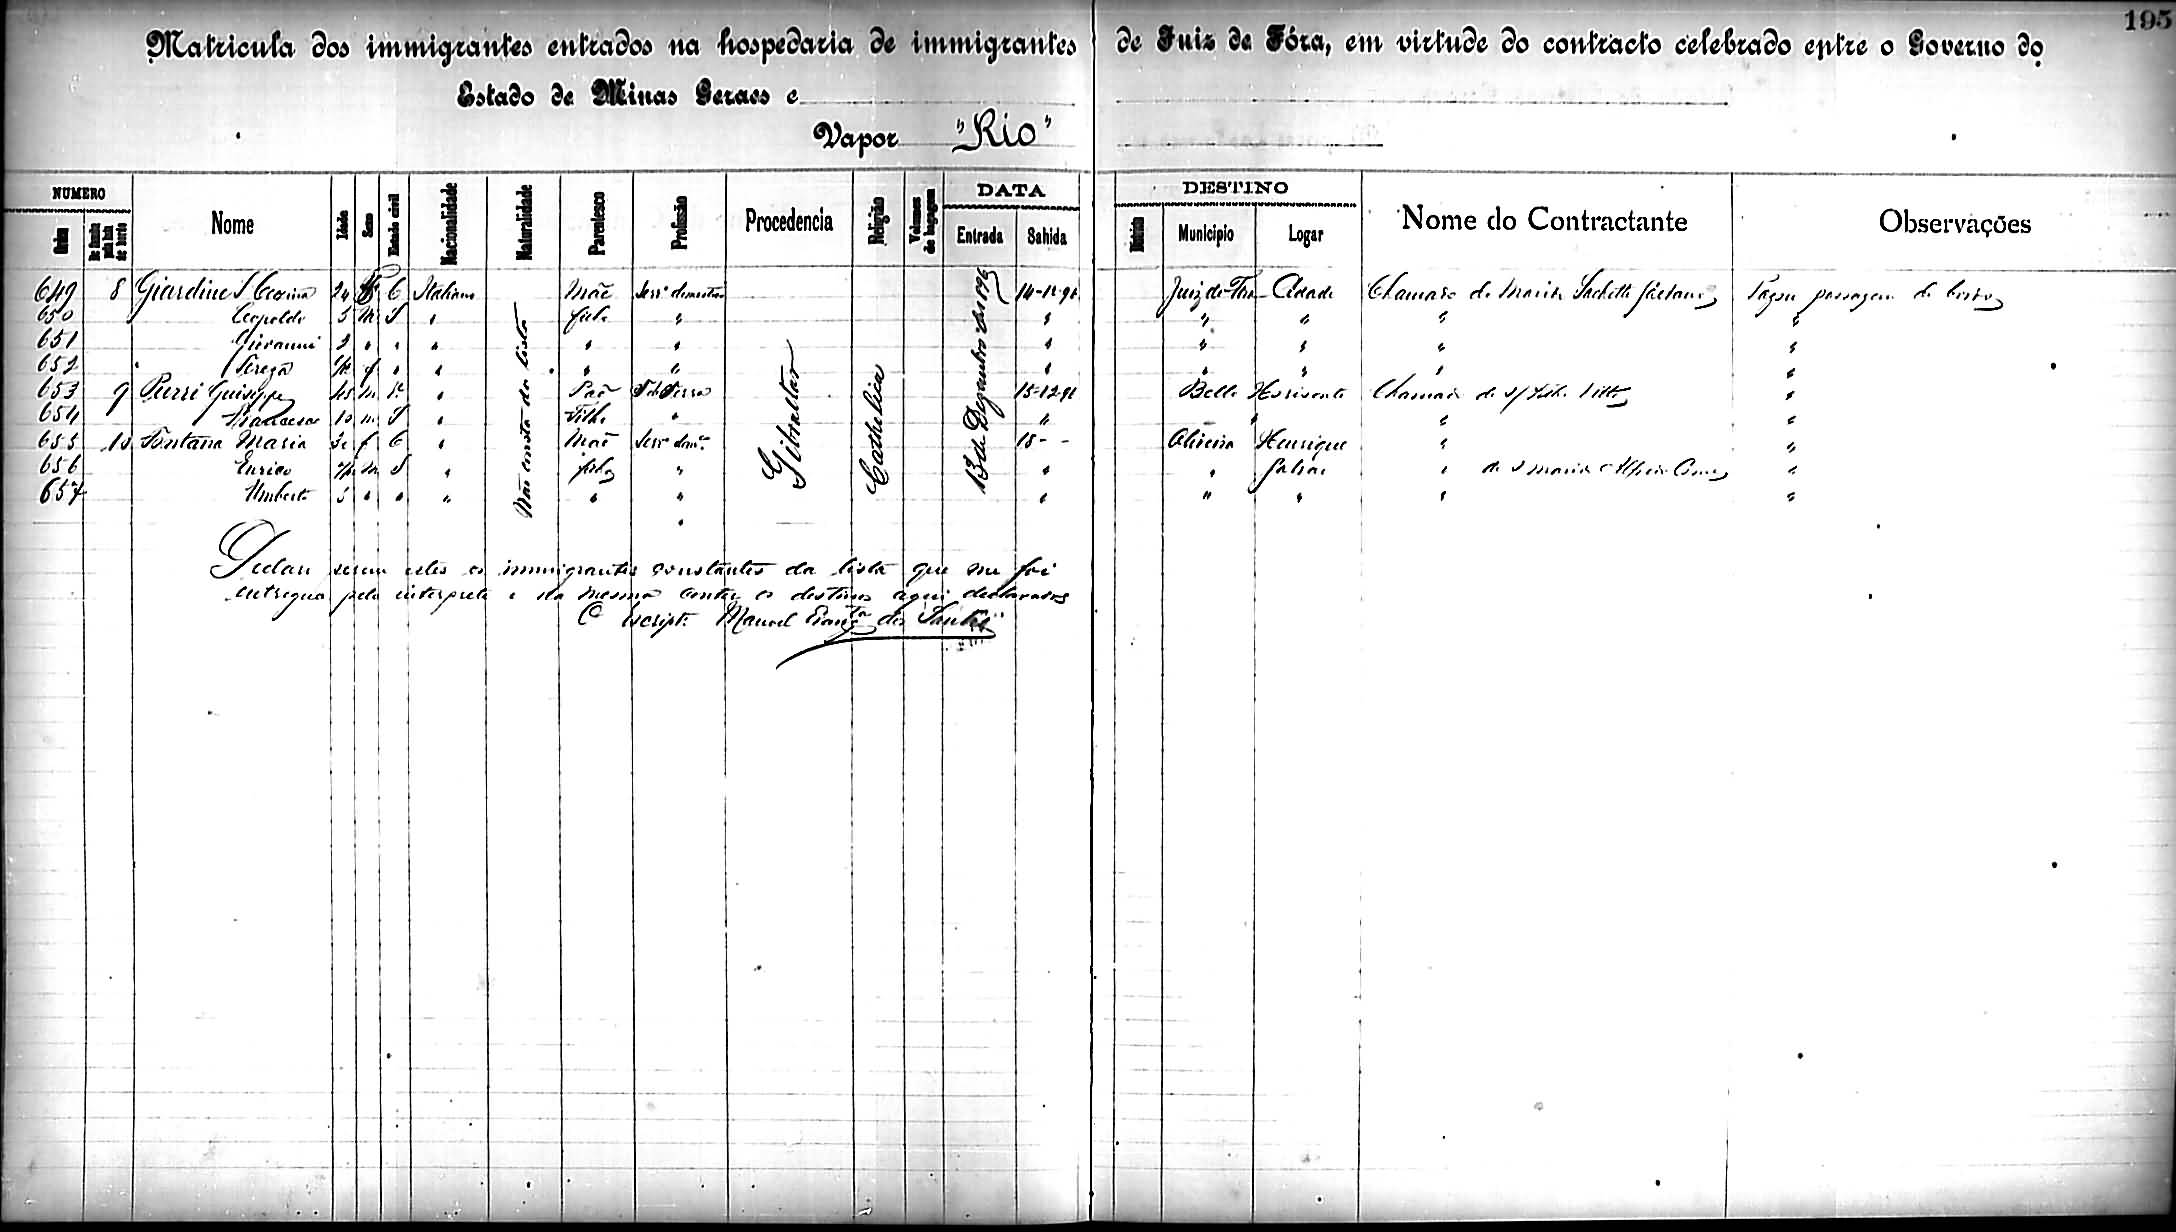 195
Matricula dos immigrantes entrados na hospedaria de immigrantes de Juiz de Fóra, em virtude do contracto celebrado entre o Governo do
Estado de Minas Geraes e
Vapor "Rio"
NUMERO DATA DESTINO
Ordem Nome Idade Sexo Estado civil Nacionalidade Naturalidade Parentesco Profissão Procedencia Religião Volumes de bagagem Entrada Sahida Municipio Logar Nome do Contractante Observações
649 8 Giardine 24 C Italiana Mãe 14-12-96 Juiz de Fóra Cidade Chamado do Marido Pagou passagem de bordo
650 Leopoldo 5 m S " filho " " " " " "
651 Giovanni 2 " " " " " " " " " "
652 Tereza f " " " " " " " " "
653 9 Giuseppe 45 m " Pae 15-12-96 Bello Horisonte Chamado de s/ filho "
654 Francesco 10 m S " Filho " " " " "
655 10 Fontana Maria 30 f C " Mãe Serv. dom. 15 - - Oliveira Henrique " "
656 Enrico m S " filho " " " Galvão " do s marido "
657 Umberto 5 " " " " " " " " " "
Não consta da lista
Gibraltar
Catholica
13 de Dezembro de 1896
Declaro serem estes os immigrantes constantes da lista que me foi
entregue pelo interprete e da mesma os destinos aqui declarados
O Escript. Manoel dos Santos